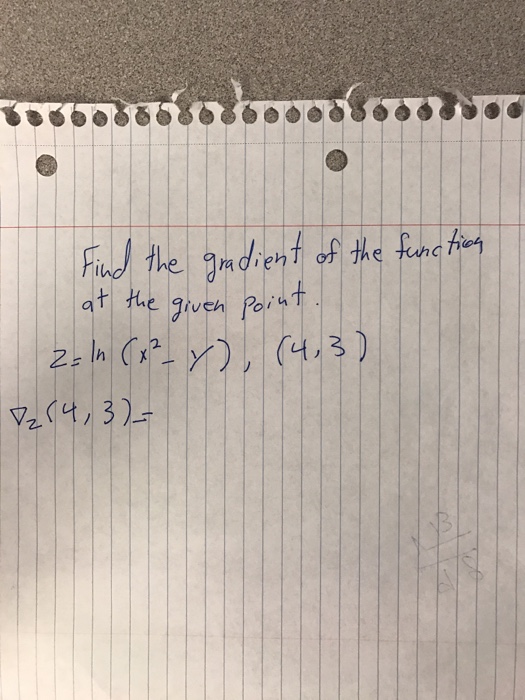 Find the gradient of the function
at the given point.
z = ln (x² - y), (4,3)
∇z(4,3)=